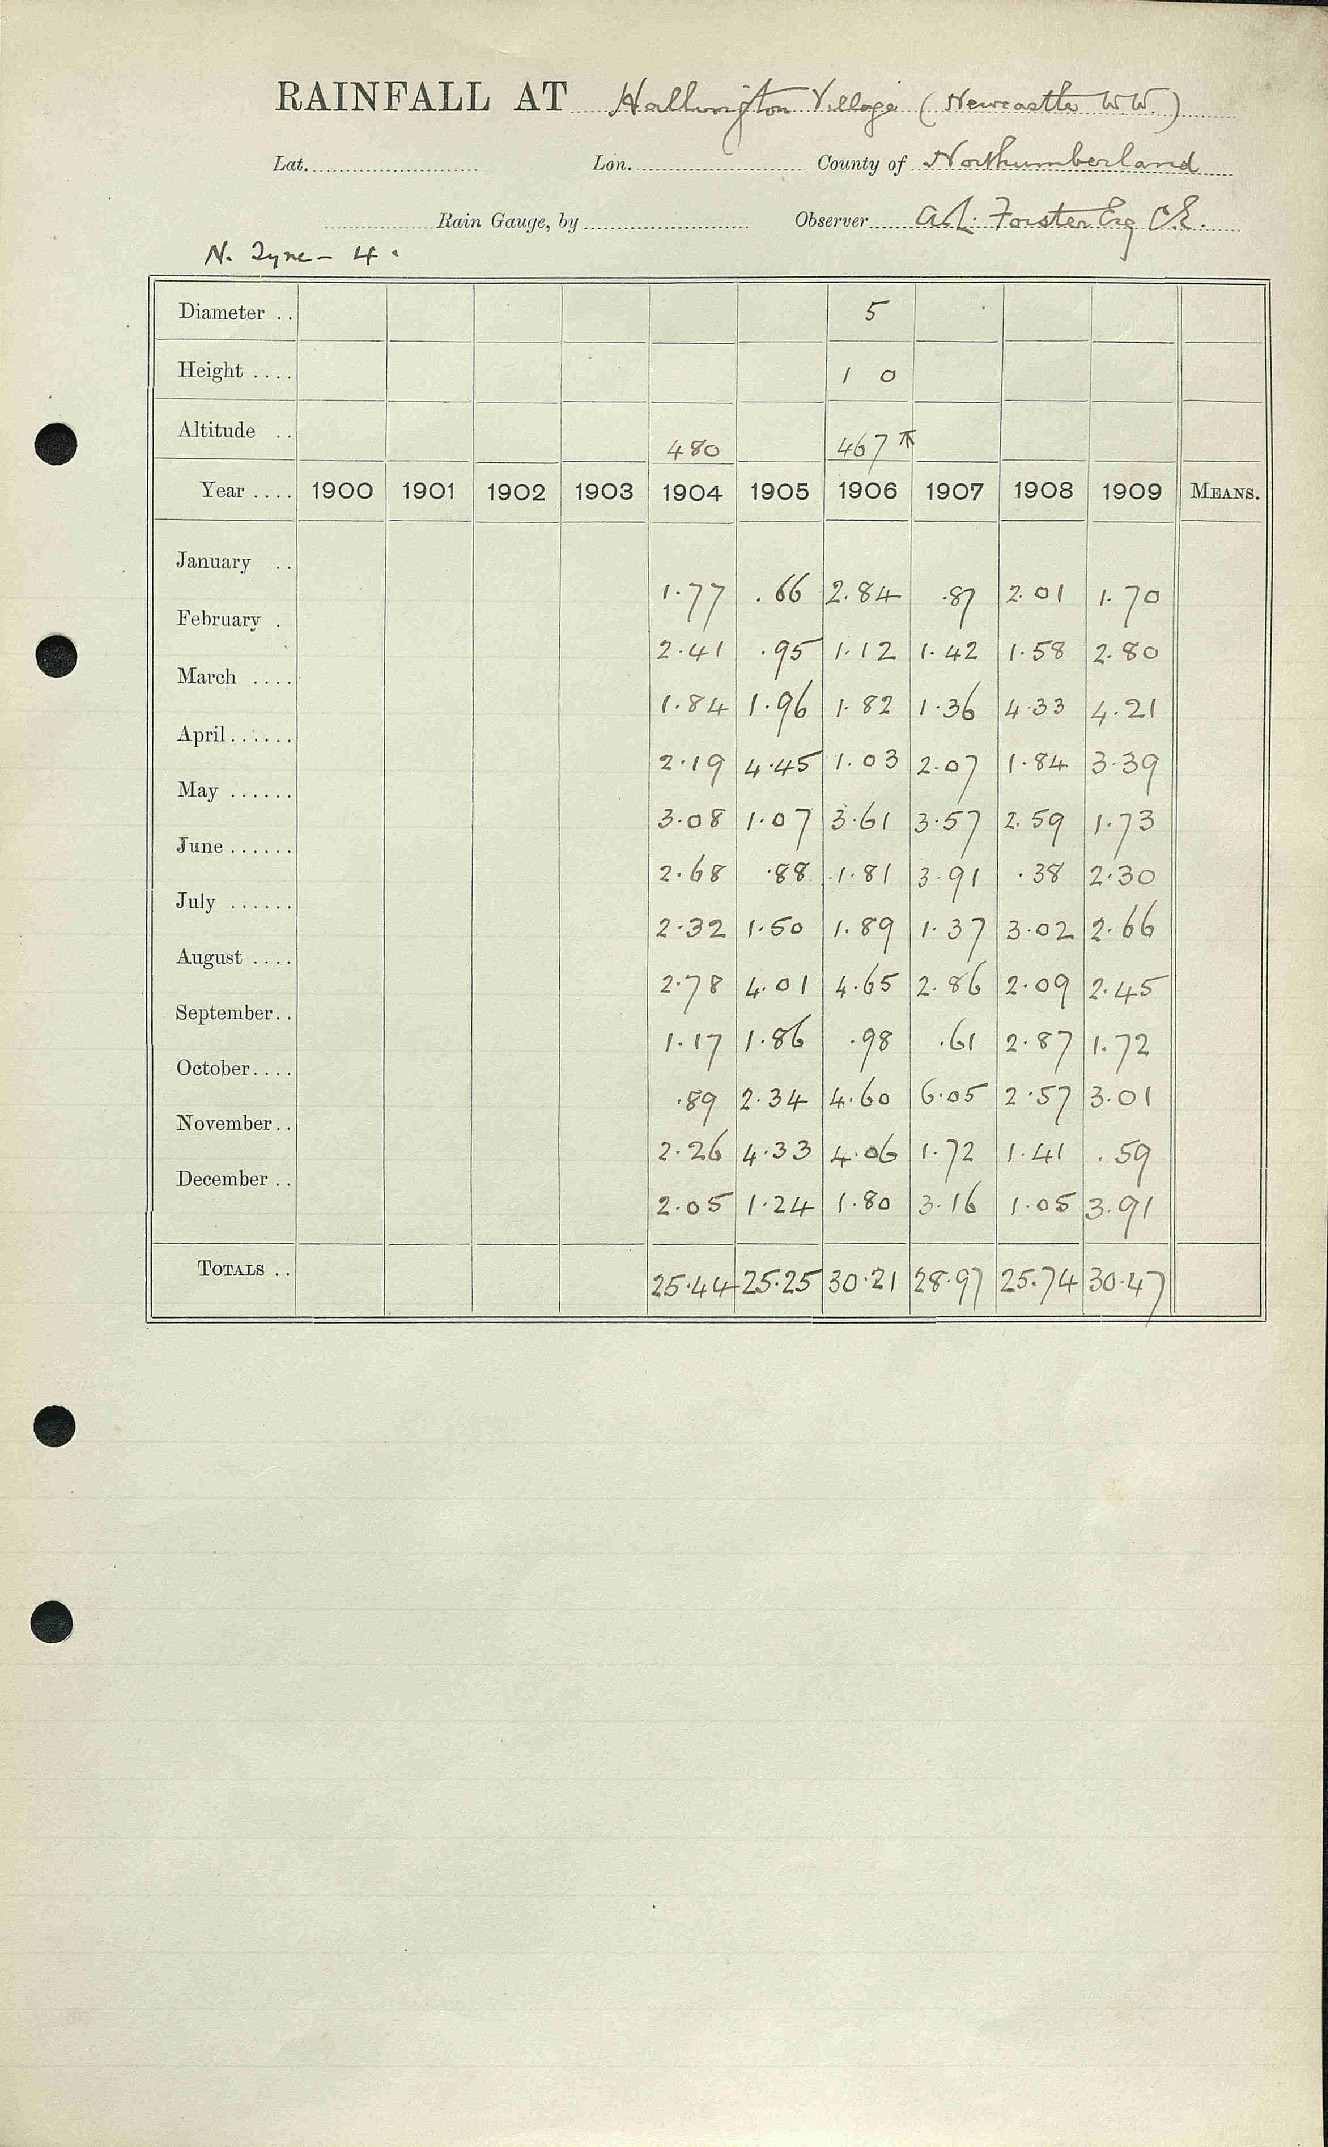 RAINFALL AT Hallington Village (Newcastle W.W.)
Lat. Lon. County of Northumberland
Rain Gauge, by Observer A.L. Forster Esq C.E.
N. Tyne - 4.
Diameter .. 5
Height .... 1 0
Altitude .. 480 467
Year .... 1900 1901 1902 1903 1904 1905 1906 1907 1908 1909 MEANS.
January .. 1.77 .66 2.84 .87 2.01 1.70
February . 2.41 .95 1.12 1.42 1.58 2.80
March .... 1.84 1.96 1.82 1.36 4.33 4.21
April...... 2.19 4.45 1.03 2.07 1.84 3.39
May ...... 3.08 1.07 3.61 3.57 2.59 1.73
June ...... 2.68 .88 1.81 3.91 .38 2.30
July ...... 2.32 1.50 1.89 1.37 3.02 2.66
August .... 2.78 4.01 4.65 2.86 2.09 2.45
September.. 1.17 1.86 .98 .61 2.87 1.72
October.... .89 2.34 4.60 6.05 2.57 3.01
November.. 2.26 4.33 4.06 1.72 1.41 .59
December .. 2.05 1.24 1.80 3.16 1.05 3.91
TOTALS .. 25.44 25.25 30.21 28.97 25.74 30.47